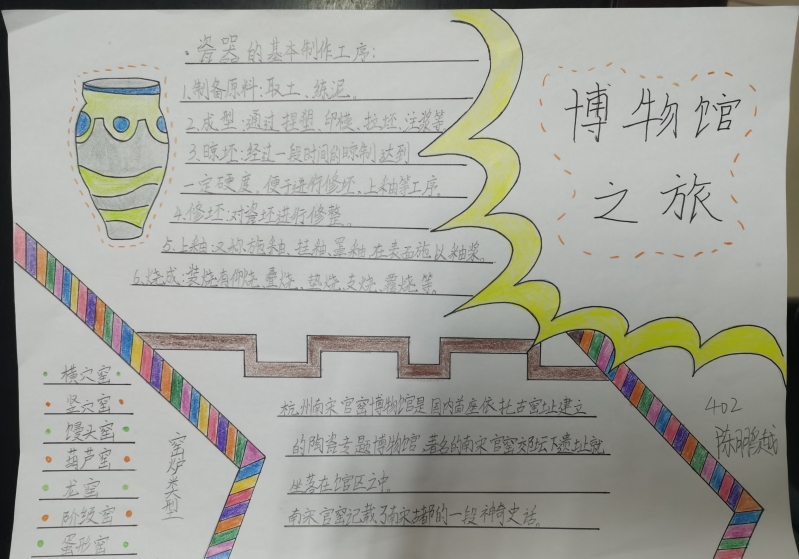 ·瓷器的基本制作工序:
1.制备原料:取土、练泥。
2.成型:通过捏塑、印模、拉坯、注浆等
3.晾坯:经过一段时间的晾制达到
一定硬度,便于进行修坯、上釉等工序。
4.修坯:对瓷坯进行修整。
5.上釉:又称施釉、挂釉、罩釉,在表面施以釉浆。
6.烧成:装烧有仰烧、叠烧、垫烧、支烧、覆烧等。
博物馆
之旅
横穴窑
竖穴窑
馒头窑
葫芦窑
龙窑
阶级窑
蛋形窑
窑炉类型
杭州南宋官窑博物馆是国内首座依托古窑址建立
的陶瓷专题博物馆,著名的南宋官窑郊坛下遗址就
坐落在馆区之中。
南宋官窑记载了南宋古都的一段神奇史话。
402
陈
越